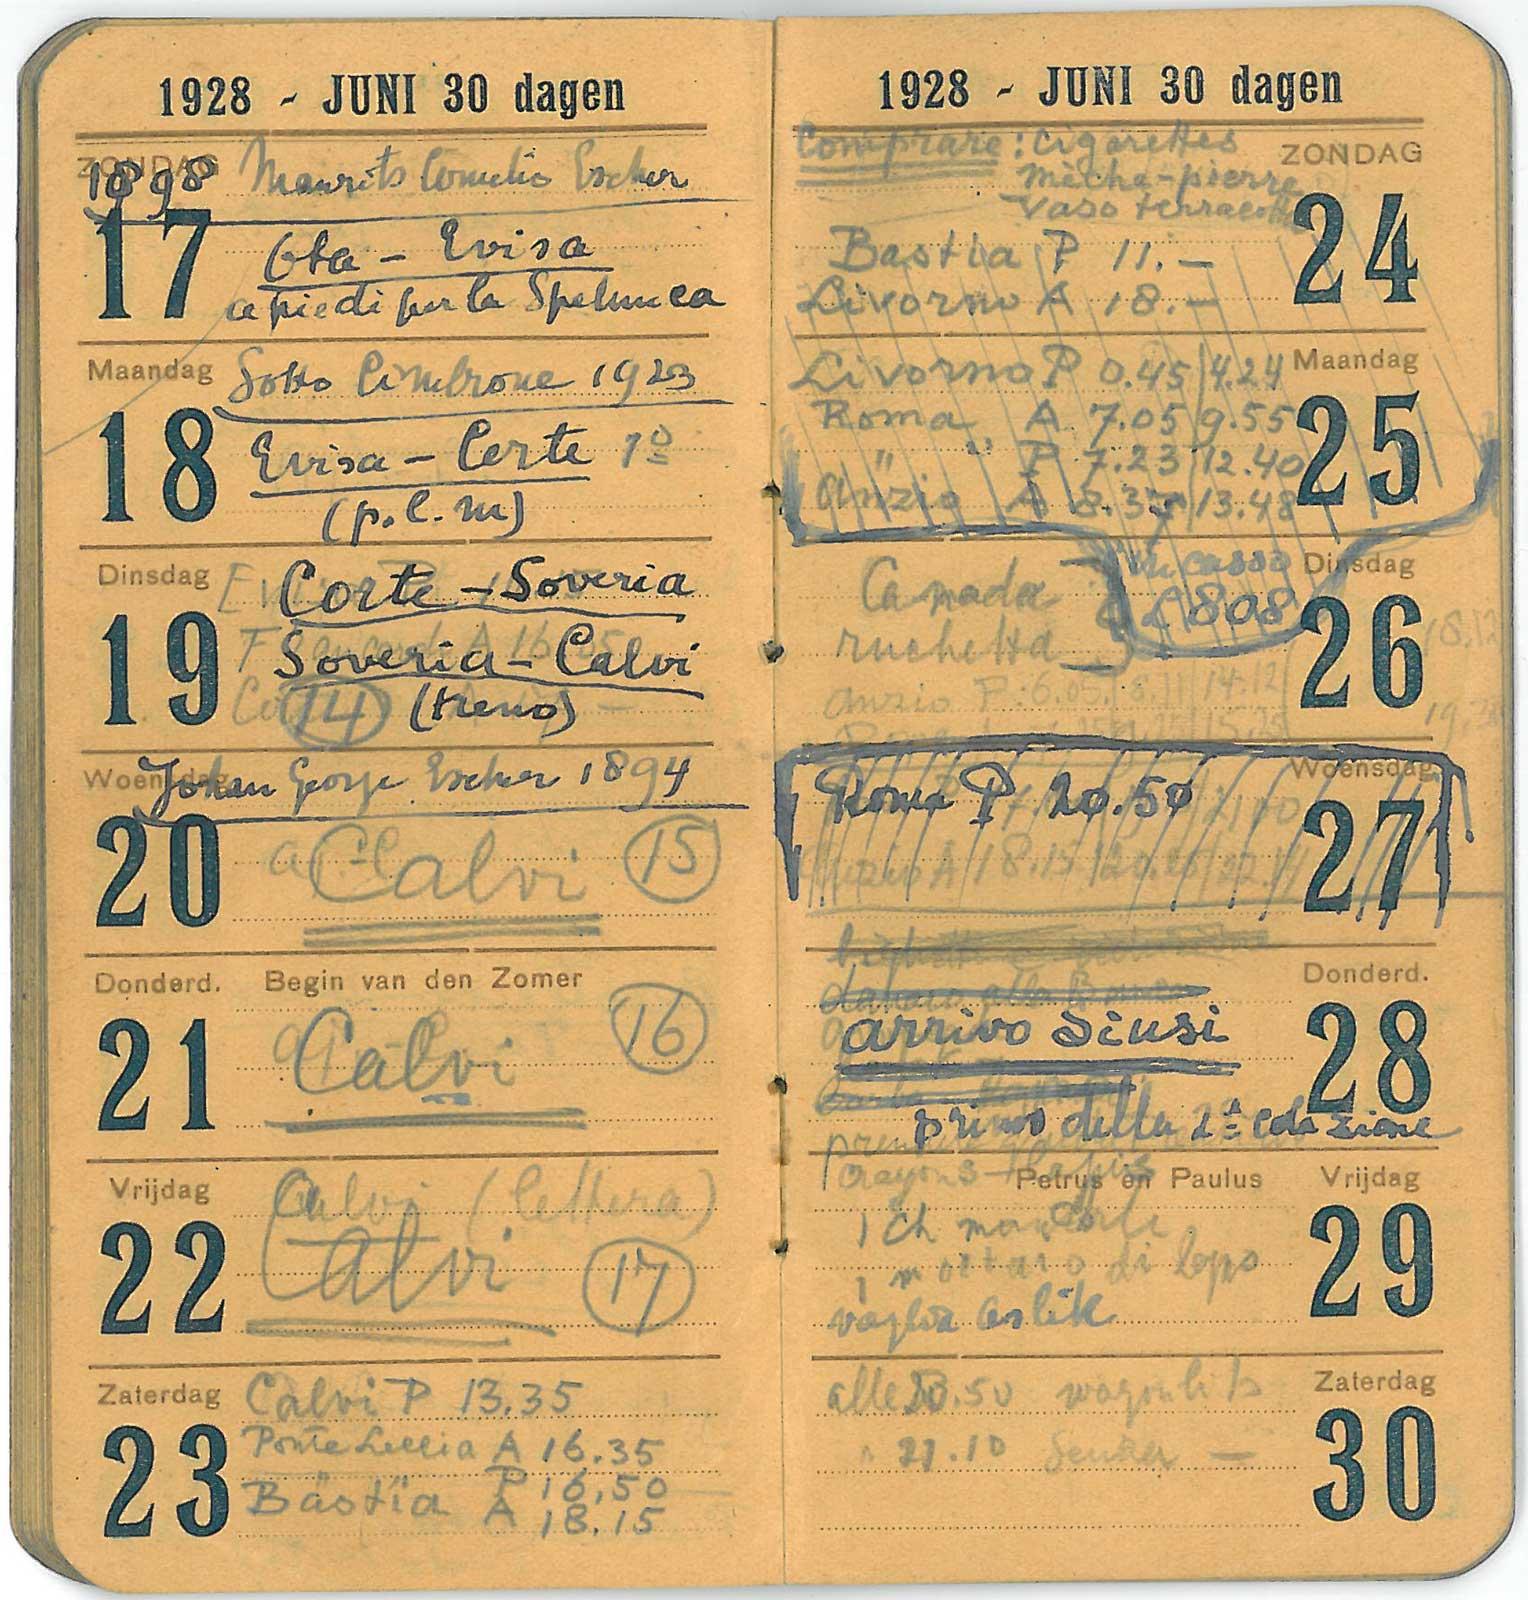 1928 - JUNI 30 dagen
ZONDAG
1898 Maurits Cornelis Escher
17
Ota - Evisa
a piedi per la Spelunca
Maandag
Sotto Cimbrone 1923
18
Evisa - Corte
(p.l.m)
Dinsdag
Corte - Soveria
19
Soveria - Calvi
14 (treno)
Woensdag
Johan George Escher 1894
20
Calvi 15
Donderd. Begin van den Zomer
21
Calvi 16
Vrijdag
Calvi (lettera)
22
Calvi 17
Zaterdag
Calvi P 13.35
23
Ponte Leccia A 16.35
" P 16,50
Bastia A 18.15
1928 - JUNI 30 dagen
Comprare: Cigarettes
ZONDAG
mèche-pierre
vaso terracotta
24
Bastia P 11.—
Livorno A 18.—
Maandag
Livorno P 0.45 14.24
Roma A 7.05 9.55
25
" P 7.23 12.40
Anzio A 8.35 13.48
Dinsdag
in cassa
Canada
£ 808
ruchetta
26
Anzio P. 6.05. 14.12
Woensdag
Roma P 20.50
27
Anzio A 18.15 20.26 22.14
Donderd.
28
arrivo Siusi
prima della 2ª colazione
crayons - lapis
Petrus en Paulus Vrijdag
29
vaglia Aslik
Zaterdag
alle 20.50 wagonlits
21.10
30